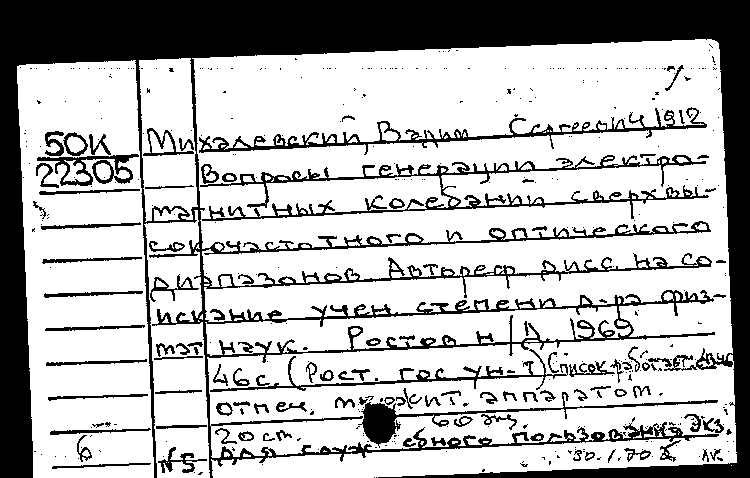 50К Михалевский, Вадим Сергеевич, 1912
22305 Вопросы генерации электро-
магнитных колебаний сверхвы-
сокочастотного и оптического
диапазонов Автореф дисс. на со-
искание учен. степени д-ра физ-
мат наук. Ростов н/Д, 1969
46с. (Рост. гос ун-т) Список работ авт.
отпеч. множит. аппаратом.
20 ст. 60 экз.
6 №5. Для служебного пользования Экз.
30.1.70